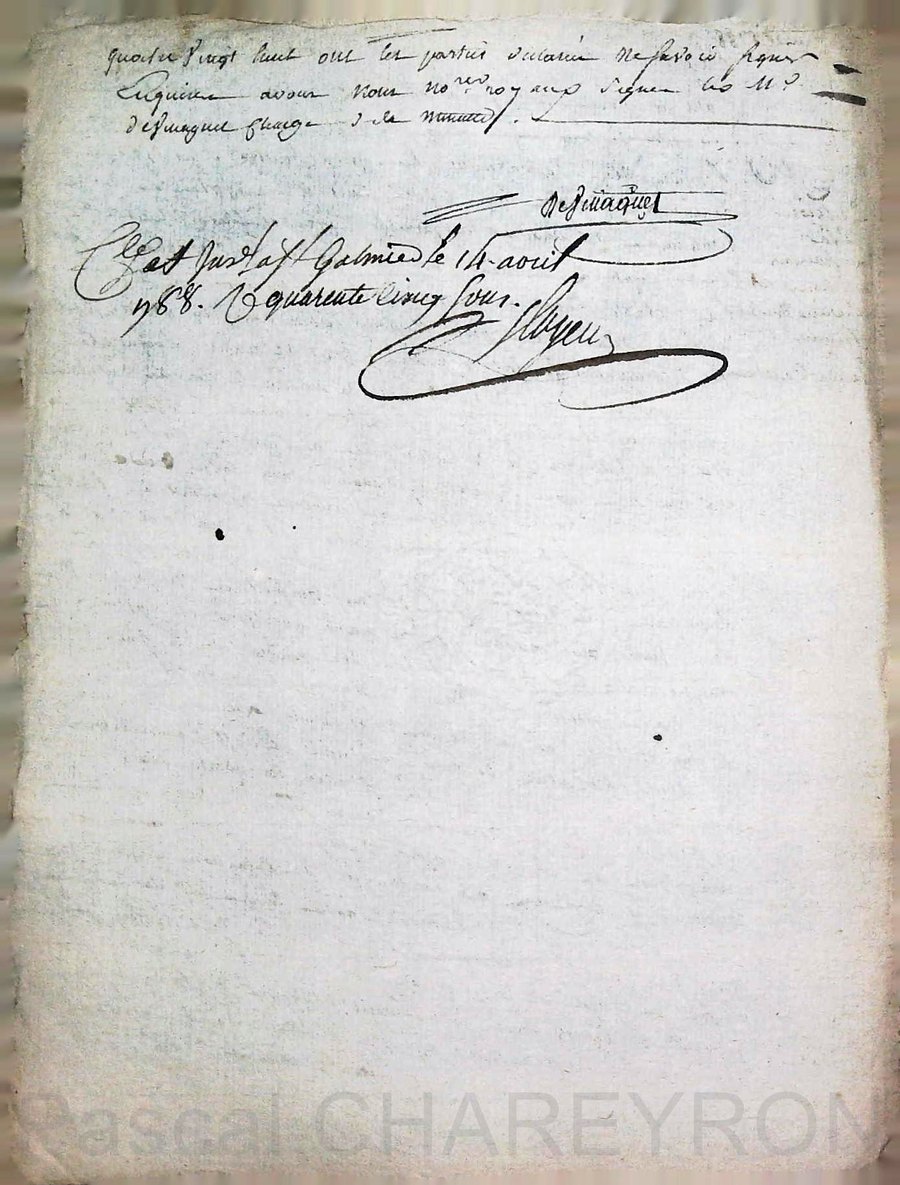 quatre vingt huit ont les parties declarées ne savoir signer
Enquises avons nous no.res royaux signé led. M.e
desmaguet chargé de la minute.
desmaguet
Cllé et Insé a St Galmier le 14. aout
1788. R quarente cinq sous.
Pascal CHAREYRON